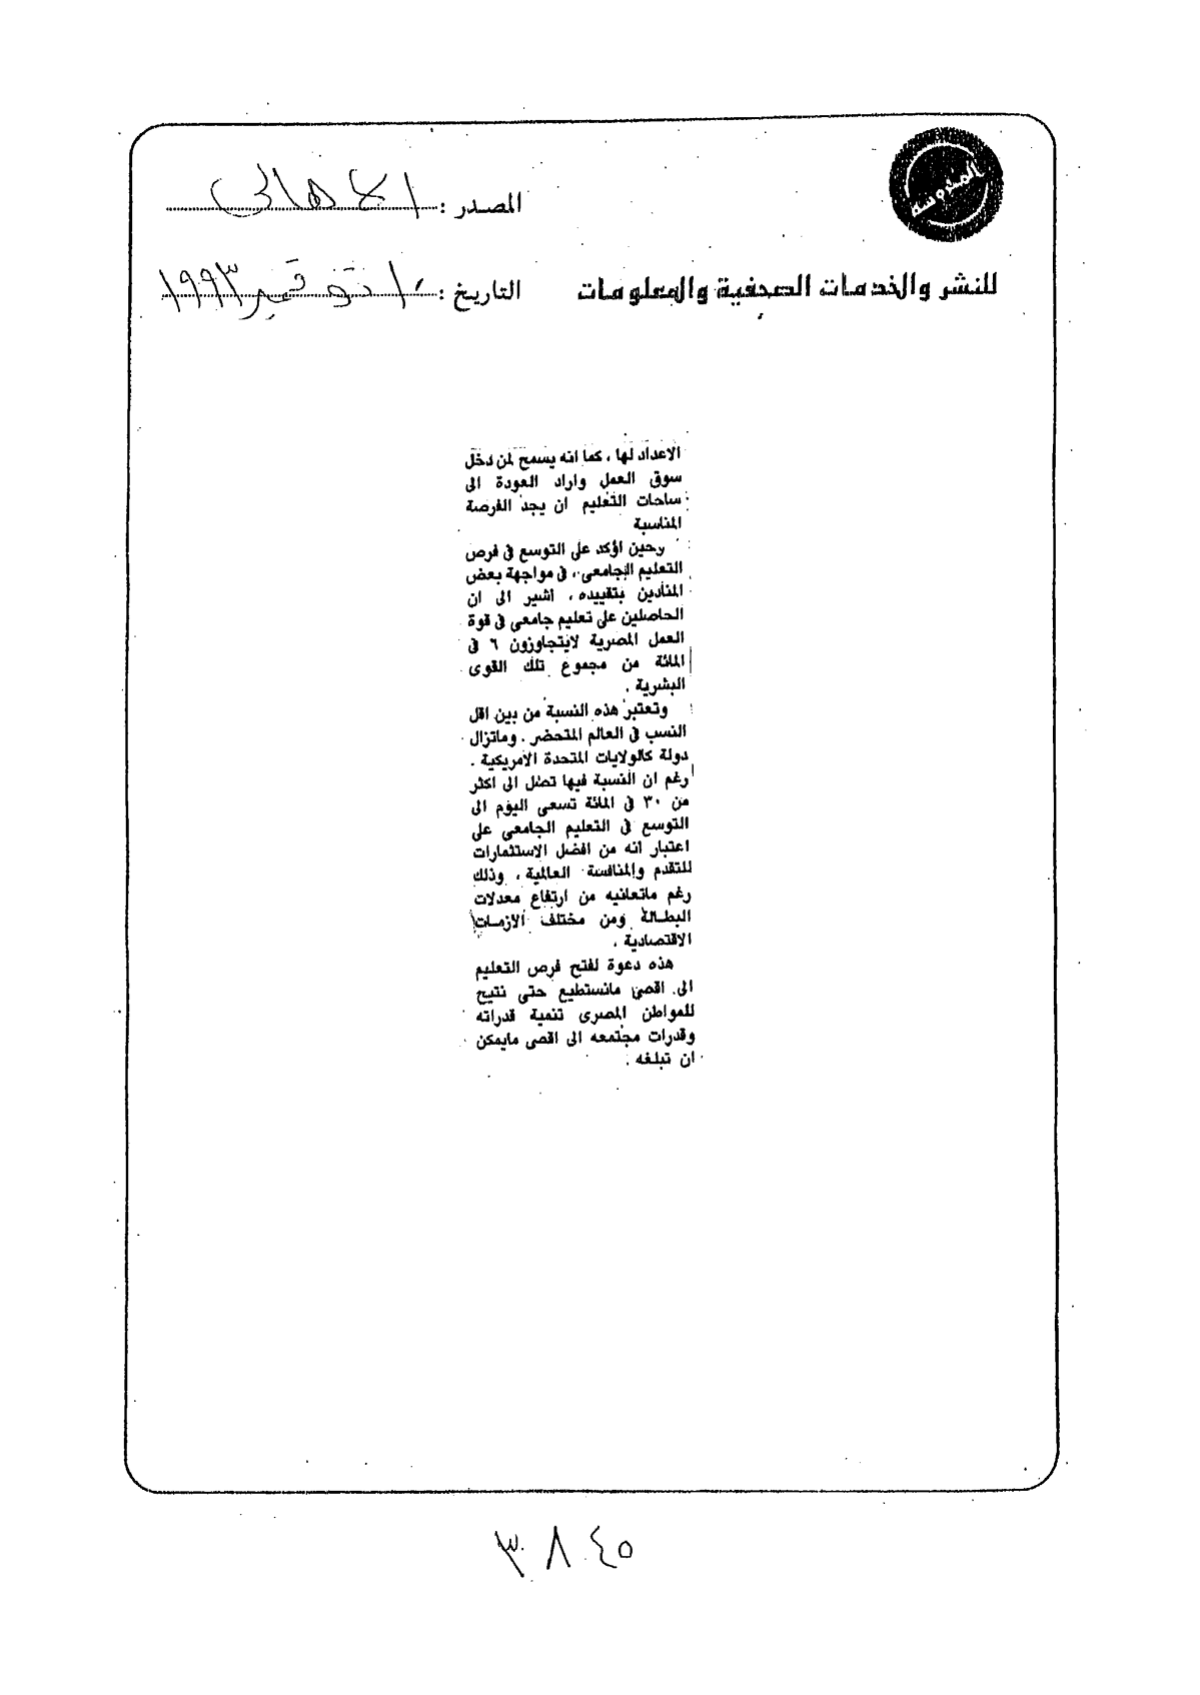 المدوسة
المصدر : الاهالى
للنشر والخدمات الصحفية والمعلومات
التاريخ : ١٠ نوفمبر ١٩٩٣
الاعداد لها ، كما انه يسمح لمن دخل
سوق العمل واراد العودة الى
ساحات التعليم ان يجد الفرصة
المناسبة
وحين اؤكد على التوسع فى فرص
التعليم الجامعى ، فى مواجهة بعض
المنادين بتقييده ، اشير الى ان
الحاصلين على تعليم جامعى فى قوة
العمل المصرية لايتجاوزون ٦ فى
المائة من مجموع تلك القوى
البشرية .
وتعتبر هذه النسبة من بين اقل
النسب فى العالم المتحضر . وماتزال
دولة كالولايات المتحدة الامريكية .
رغم ان النسبة فيها تصل الى اكثر
من ٣٠ فى المائة تسعى اليوم الى
التوسع فى التعليم الجامعى على
اعتبار انه من افضل الاستثمارات
للتقدم والمنافسة العالمية ، وذلك
رغم ماتعانيه من ارتفاع معدلات
البطالة ومن مختلف الازمات
الاقتصادية .
هذه دعوة لفتح فرص التعليم
الى اقصى مانستطيع حتى نتيح
للمواطن المصرى تنمية قدراته
وقدرات مجتمعه الى اقصى مايمكن
ان تبلغه .
٣٨٤٥